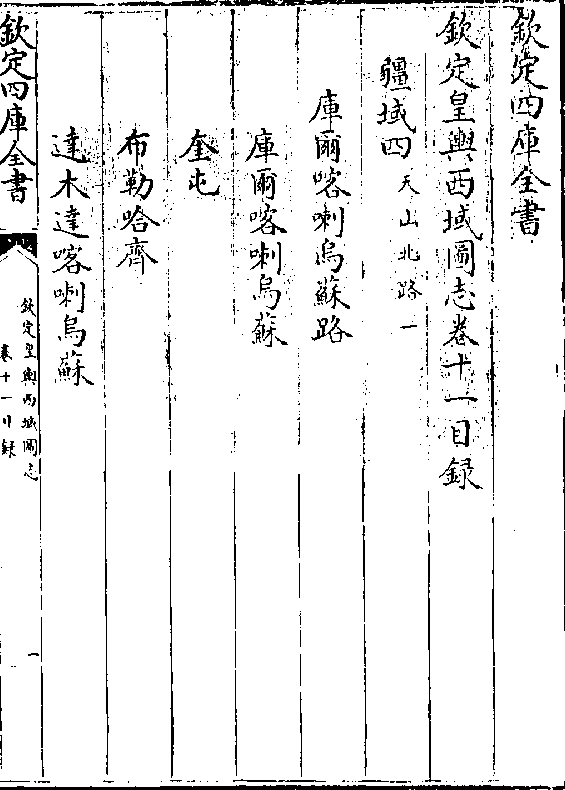 欽定四庫全書
欽定皇輿西域圖志卷十一目録
疆域四天山北路一
庫爾喀喇烏蘇路
庫爾喀喇烏蘇
奎屯
布勒哈齊
達木達喀喇烏蘇
欽定四庫全書
欽定皇輿西域圖志
卷十一目録
一